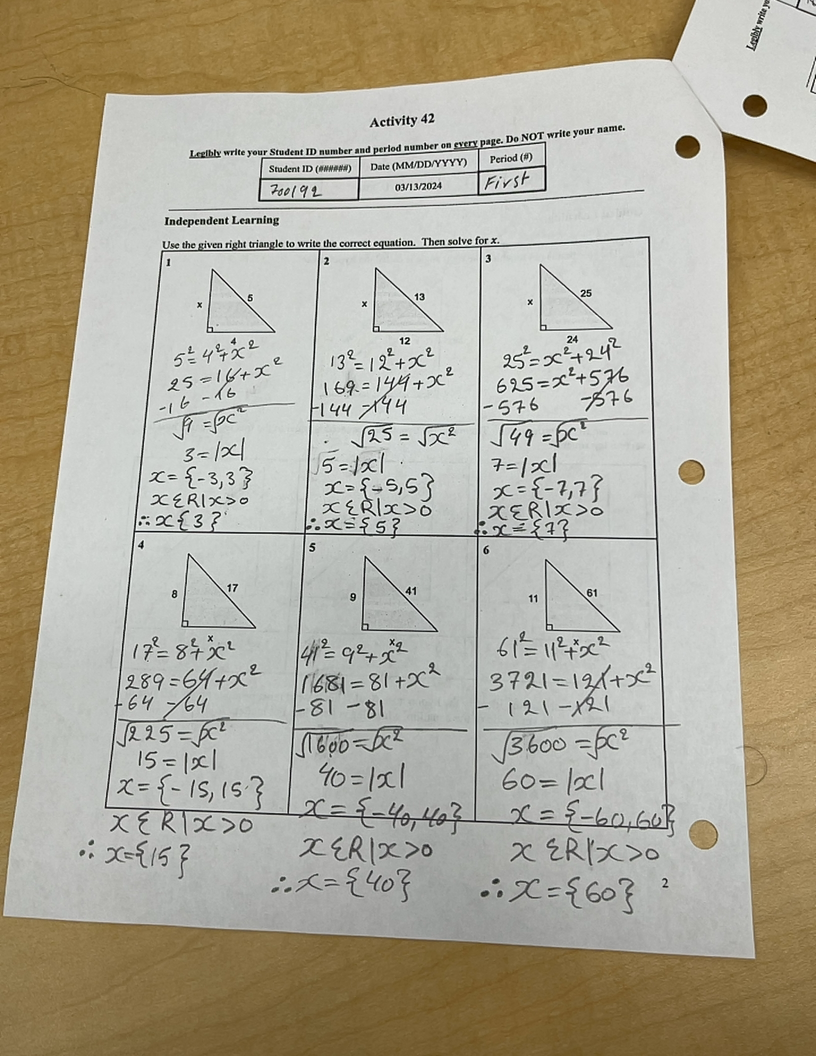 Activity 42
Legibly write your Student ID number and period number on every page. Do NOT write your name.
Student ID (######) Date (MM/DD/YYYY) Period (#)
700192 03/13/2024 First
Independent Learning
Use the given right triangle to write the correct equation. Then solve for x.
1
x 5
4
5²=4²+x²
25=16+x²
-16 -16
√9=√x²
3=|x|
x={-3,3}
xƐR|x>0
∴x{3}
2
x 13
12
13²=12²+x²
169=144+x²
-144 -144
√25=√x²
5=|x|
x={-5,5}
xƐR|x>0
∴x={5}
3
x 25
24
25²=x²+24²
625=x²+576
-576 -576
√49=√x²
7=|x|
x={-7,7}
xƐR|x>0
∴x={7}
4
8 17
x
17²=8²+x²
289=64+x²
-64 -64
√225=√x²
15=|x|
x={-15,15}
xƐR|x>0
∴x={15}
5
9 41
x
41²=9²+x²
1681=81+x²
-81 -81
√1600=√x²
40=|x|
x={-40,40}
xƐR|x>0
∴x={40}
6
11 61
x
61²=11²+x²
3721=121+x²
- 121 -121
√3600=√x²
60=|x|
x={-60,60}
xƐR|x>0
∴x={60}
2
Legibly write yo